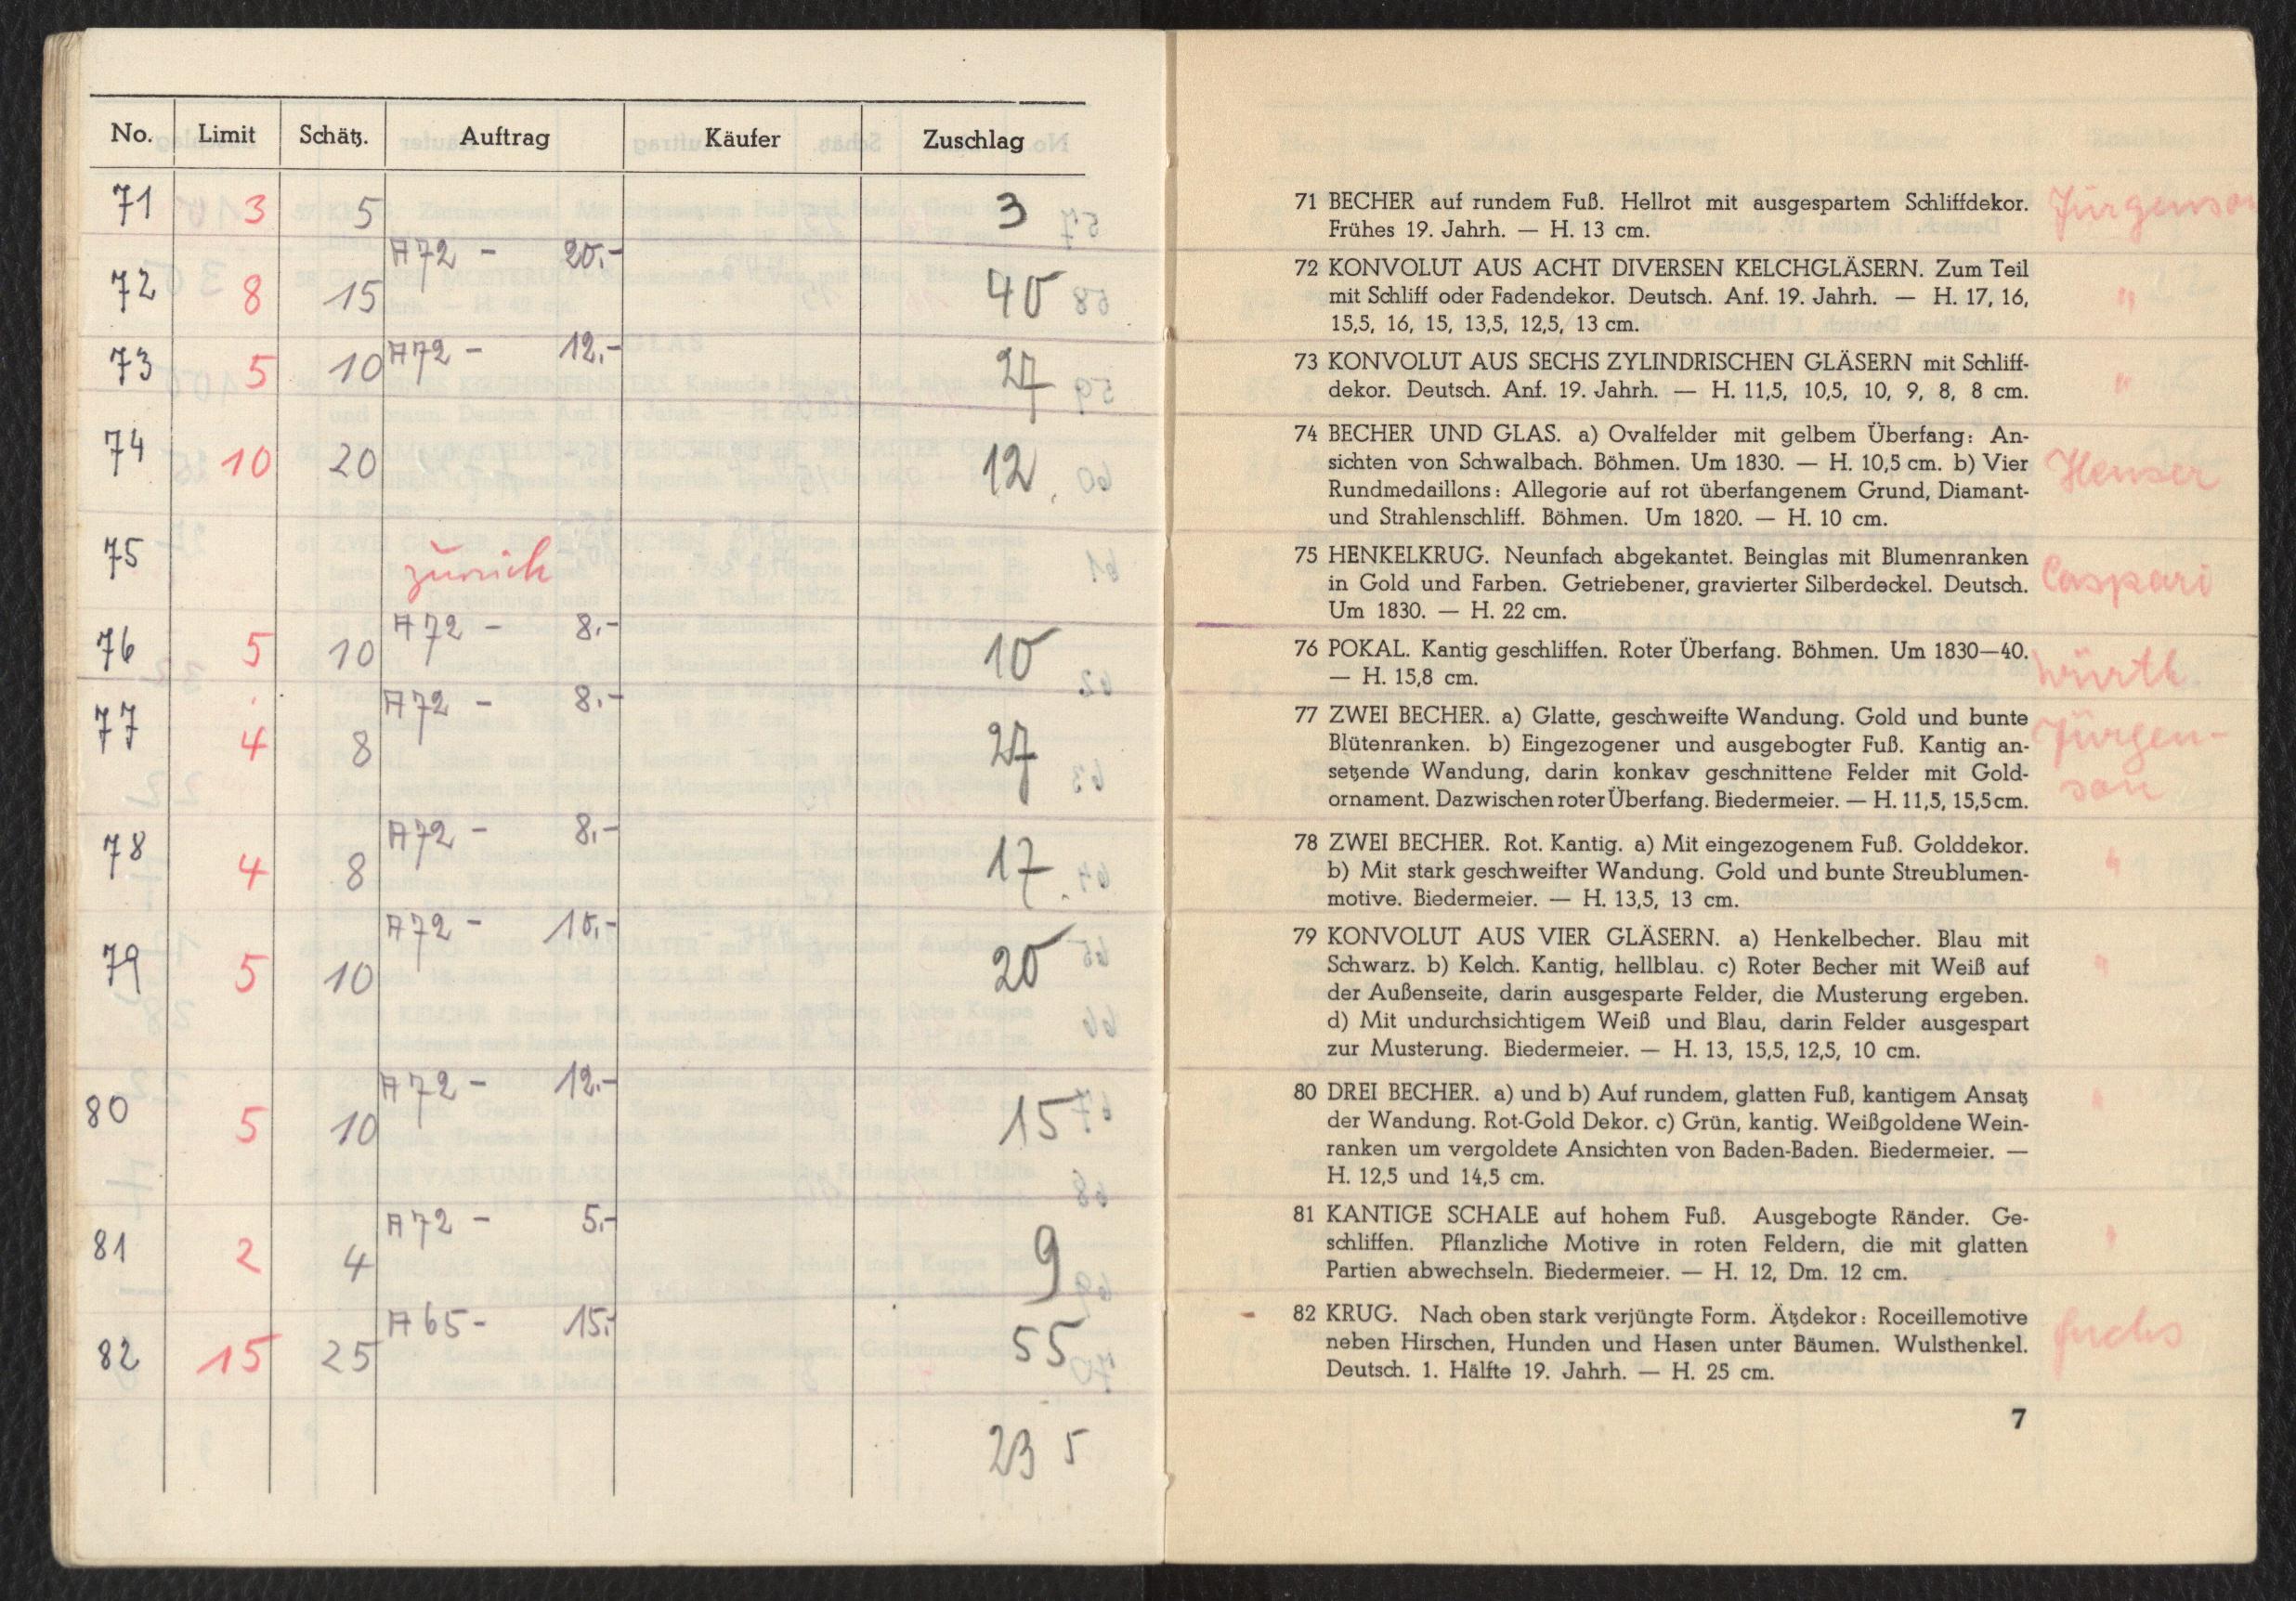 No. Limit Schätz. Auftrag Käufer Zuschlag
71 3 5 3
A72 - 20.-
72 8 15 40
A72 - 12.-
73 5 10 27
74 10 20 12
75 zurück
A72 - 8.-
76 5 10 10
A72 - 8.-
77 4 8 27
A72 - 8.-
78 4 8 17
A72 - 10.-
79 5 10 20
A72 - 12.-
80 5 10 15
A72 - 5.-
81 2 4 9
A65 - 15.-
82 15 25 55
235
71 BECHER auf rundem Fuß. Hellrot mit ausgespartem Schliffdekor. Jürgenson
Frühes 19. Jahrh. — H. 13 cm.
72 KONVOLUT AUS ACHT DIVERSEN KELCHGLÄSERN. Zum Teil
mit Schliff oder Fadendekor. Deutsch. Anf. 19. Jahrh. — H. 17, 16, "
15,5, 16, 15, 13,5, 12,5, 13 cm.
73 KONVOLUT AUS SECHS ZYLINDRISCHEN GLÄSERN mit Schliff-
dekor. Deutsch. Anf. 19. Jahrh. — H. 11,5, 10,5, 10, 9, 8, 8 cm. "
74 BECHER UND GLAS. a) Ovalfelder mit gelbem Überfang: An-
sichten von Schwalbach. Böhmen. Um 1830. — H. 10,5 cm. b) Vier Heuser
Rundmedaillons: Allegorie auf rot überfangenem Grund, Diamant-
und Strahlenschliff. Böhmen. Um 1820. — H. 10 cm.
75 HENKELKRUG. Neunfach abgekantet. Beinglas mit Blumenranken
in Gold und Farben. Getriebener, gravierter Silberdeckel. Deutsch. Caspari
Um 1830. — H. 22 cm.
76 POKAL. Kantig geschliffen. Roter Überfang. Böhmen. Um 1830—40. Würth
— H. 15,8 cm.
77 ZWEI BECHER. a) Glatte, geschweifte Wandung. Gold und bunte Jürgen-
Blütenranken. b) Eingezogener und ausgebogter Fuß. Kantig an-
setzende Wandung, darin konkav geschnittene Felder mit Gold- son
ornament. Dazwischen roter Überfang. Biedermeier. — H. 11,5, 15,5 cm.
78 ZWEI BECHER. Rot. Kantig. a) Mit eingezogenem Fuß. Golddekor. "
b) Mit stark geschweifter Wandung. Gold und bunte Streublumen-
motive. Biedermeier. — H. 13,5, 13 cm.
79 KONVOLUT AUS VIER GLÄSERN. a) Henkelbecher. Blau mit
Schwarz. b) Kelch. Kantig, hellblau. c) Roter Becher mit Weiß auf "
der Außenseite, darin ausgesparte Felder, die Musterung ergeben.
d) Mit undurchsichtigem Weiß und Blau, darin Felder ausgespart
zur Musterung. Biedermeier. — H. 13, 15,5, 12,5, 10 cm.
80 DREI BECHER. a) und b) Auf rundem, glatten Fuß, kantigem Ansatz "
der Wandung. Rot-Gold Dekor. c) Grün, kantig. Weißgoldene Wein-
ranken um vergoldete Ansichten von Baden-Baden. Biedermeier. —
H. 12,5 und 14,5 cm.
81 KANTIGE SCHALE auf hohem Fuß. Ausgebogte Ränder. Ge-
schliffen. Pflanzliche Motive in roten Feldern, die mit glatten "
Partien abwechseln. Biedermeier. — H. 12, Dm. 12 cm.
82 KRUG. Nach oben stark verjüngte Form. Ätzdekor: Roceillemotive
neben Hirschen, Hunden und Hasen unter Bäumen. Wulsthenkel. Fuchs
Deutsch. 1. Hälfte 19. Jahrh. — H. 25 cm.
7